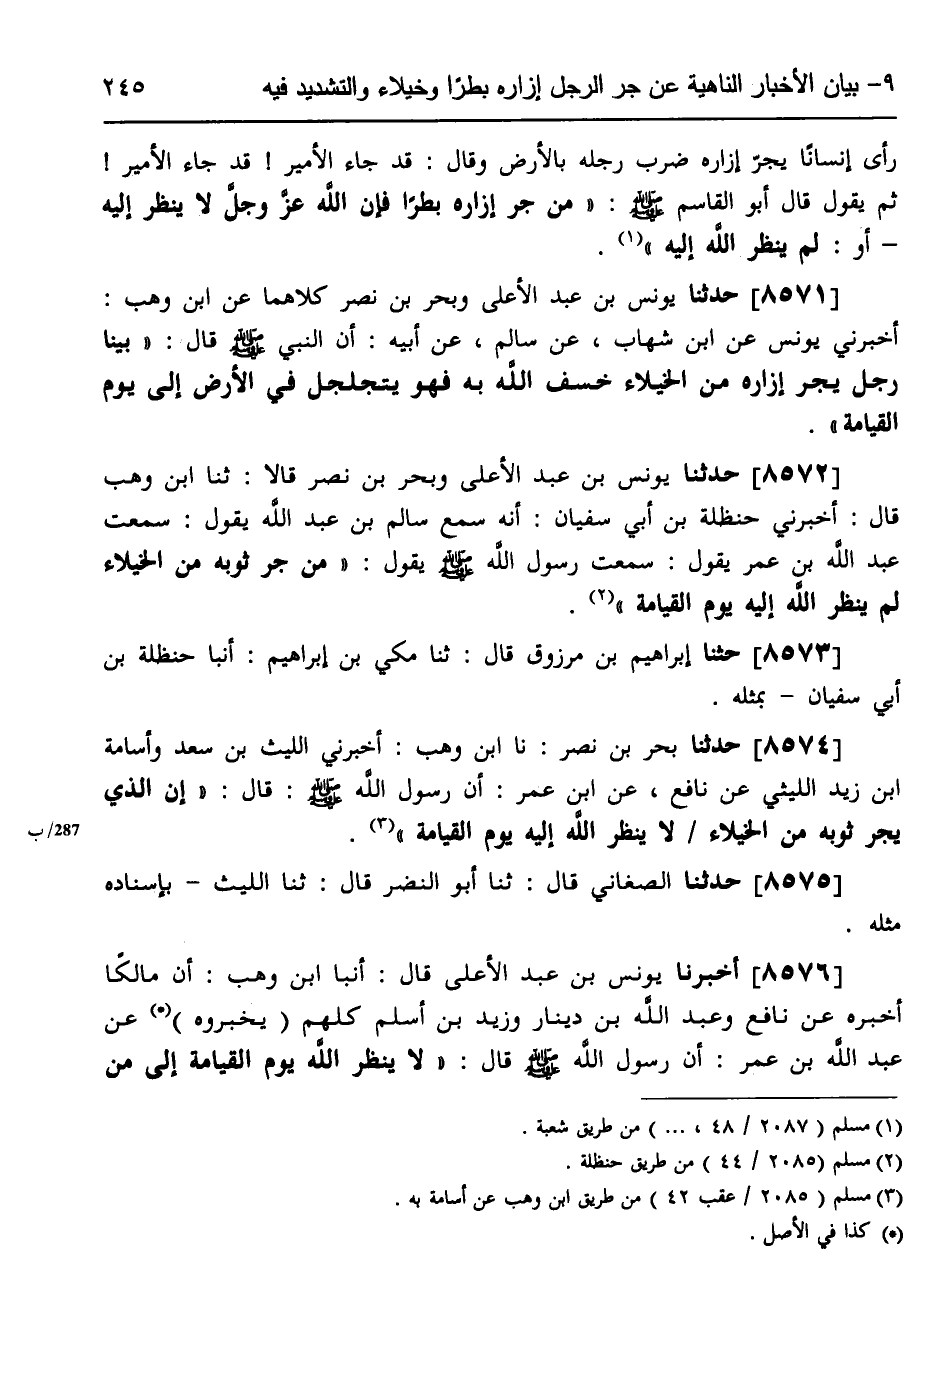 ٩- بيان الأخبار الناهية عن جر الرجل إزاره بطرًا وخيلاء والتشديد فيه ٢٤٥
رأى إنسانًا يجرّ إزاره ضرب رجله بالأرض وقال : قد جاء الأمير ! قد جاء الأمير !
ثم يقول قال أبو القاسم ﷺ : « من جر إزاره بطرًا فإن اللَّه عزَّ وجلَّ لا ينظر إليه
– أو : لم ينظر اللَّه إليه »(١) .
[٨٥٧١] حدثنا يونس بن عبد الأعلى وبحر بن نصر كلاهما عن ابن وهب :
أخبرني يونس عن ابن شهاب ، عن سالم ، عن أبيه : أن النبي ﷺ قال : « بينا
رجل يجر إزاره من الخيلاء خسف اللَّه به فهو يتجلجل في الأرض إلى يوم
القيامة» .
[٨٥٧٢] حدثنا يونس بن عبد الأعلى وبحر بن نصر قالا : ثنا ابن وهب
قال : أخبرني حنظلة بن أبي سفيان : أنه سمع سالم بن عبد اللَّه يقول : سمعت
عبد اللَّه بن عمر يقول : سمعت رسول اللَّه ﷺ يقول : « من جر ثوبه من الخيلاء
لم ينظر اللَّه إليه يوم القيامة »(٢) .
[٨٥٧٣] حثنا إبراهيم بن مرزوق قال : ثنا مكي بن إبراهيم : أنبا حنظلة بن
أبي سفيان – بمثله .
[٨٥٧٤] حدثنا بحر بن نصر : نا ابن وهب : أخبرني الليث بن سعد وأسامة
ابن زيد الليثي عن نافع ، عن ابن عمر : أن رسول اللَّه ﷺ : قال : « إن الذي
يجر ثوبه من الخيلاء / لا ينظر اللَّه إليه يوم القيامة »(٣) .
287/ب
[٨٥٧٥] حدثنا الصغاني قال : ثنا أبو النضر قال : ثنا الليث – بإسناده
مثله .
[٨٥٧٦] أخبرنا يونس بن عبد الأعلى قال : أنبا ابن وهب : أن مالكًا
أخبره عن نافع وعبد اللَّه بن دينار وزيد بن أسلم كلهم ( يخبروه )(*) عن
عبد اللَّه بن عمر : أن رسول اللَّه ﷺ قال : « لا ينظر اللَّه يوم القيامة إلى من
(١) مسلم ( ٢٠٨٧ / ٤٨ ، ... ) من طريق شعبة .
(٢) مسلم (٢٠٨٥ / ٤٤ ) من طريق حنظلة .
(٣) مسلم ( ٢٠٨٥ / عقب ٤٢ ) من طريق ابن وهب عن أسامة به .
(*) كذا في الأصل .